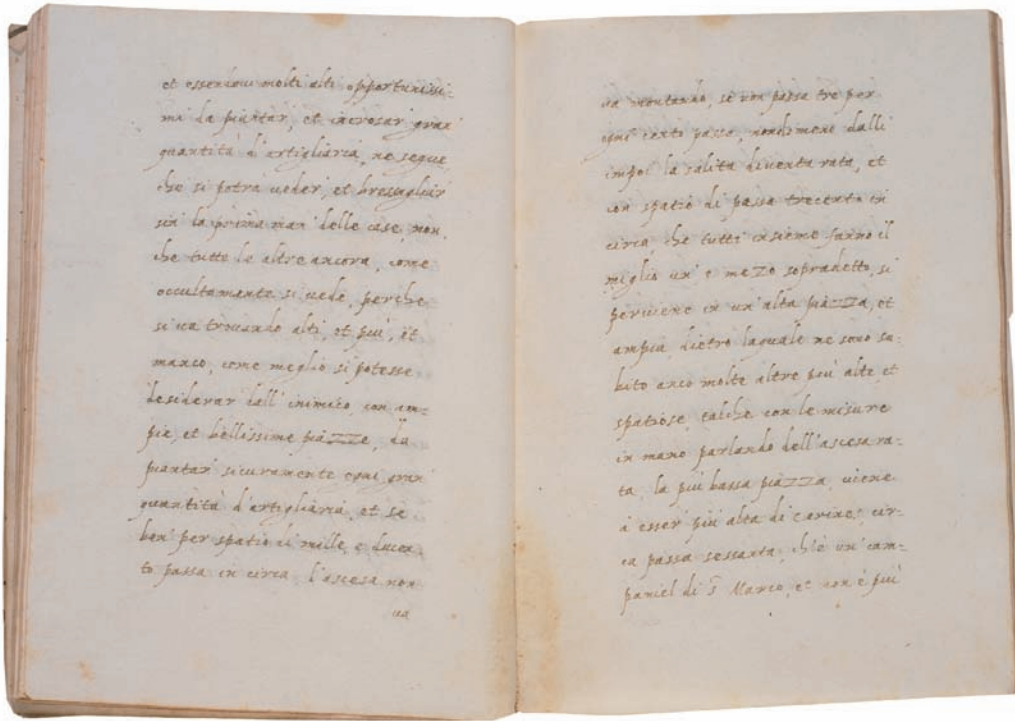 et essendoui molti alti opportunissi-
mi da piantar, et incrosar gran
quantità d'artigliaria, ne segue,
che si potrà ueder, et bressagliar
sin la prima man delle case, non
che tutte le altre ancora, come
occultamente si uede, perche
si ua trouando alti, et più, et
manco, come meglio si potesse
desiderar dall'inimico, con am-
pie, et bellissime piazze, da
piantar sicuramente ogni gran
quantità d'artigliaria, et se
ben per spatio di mille, e ducen
to passa in circa, l'ascesa non
ua
ua montando, se non passa tre per
ogni cento passa, nondimeno dalli
impoi la salita diuenta rata, et
con spatio di passa trecento in
circa, che tutti insieme fanno il
miglio un' e mezo sopradetto, si
peruiene in un'alta piazza, et
ampia dietro laquale ne sono su-
bito anco molte altre più alte, et
spatiose, talche con le misure
in mano parlando dell'ascesa ra-
ta, la più bassa piazza, uiene
à esser più alta di Cerines cir-
ca passa sessanta, ch'è un cam-
paniel di S. Marco, et non è più